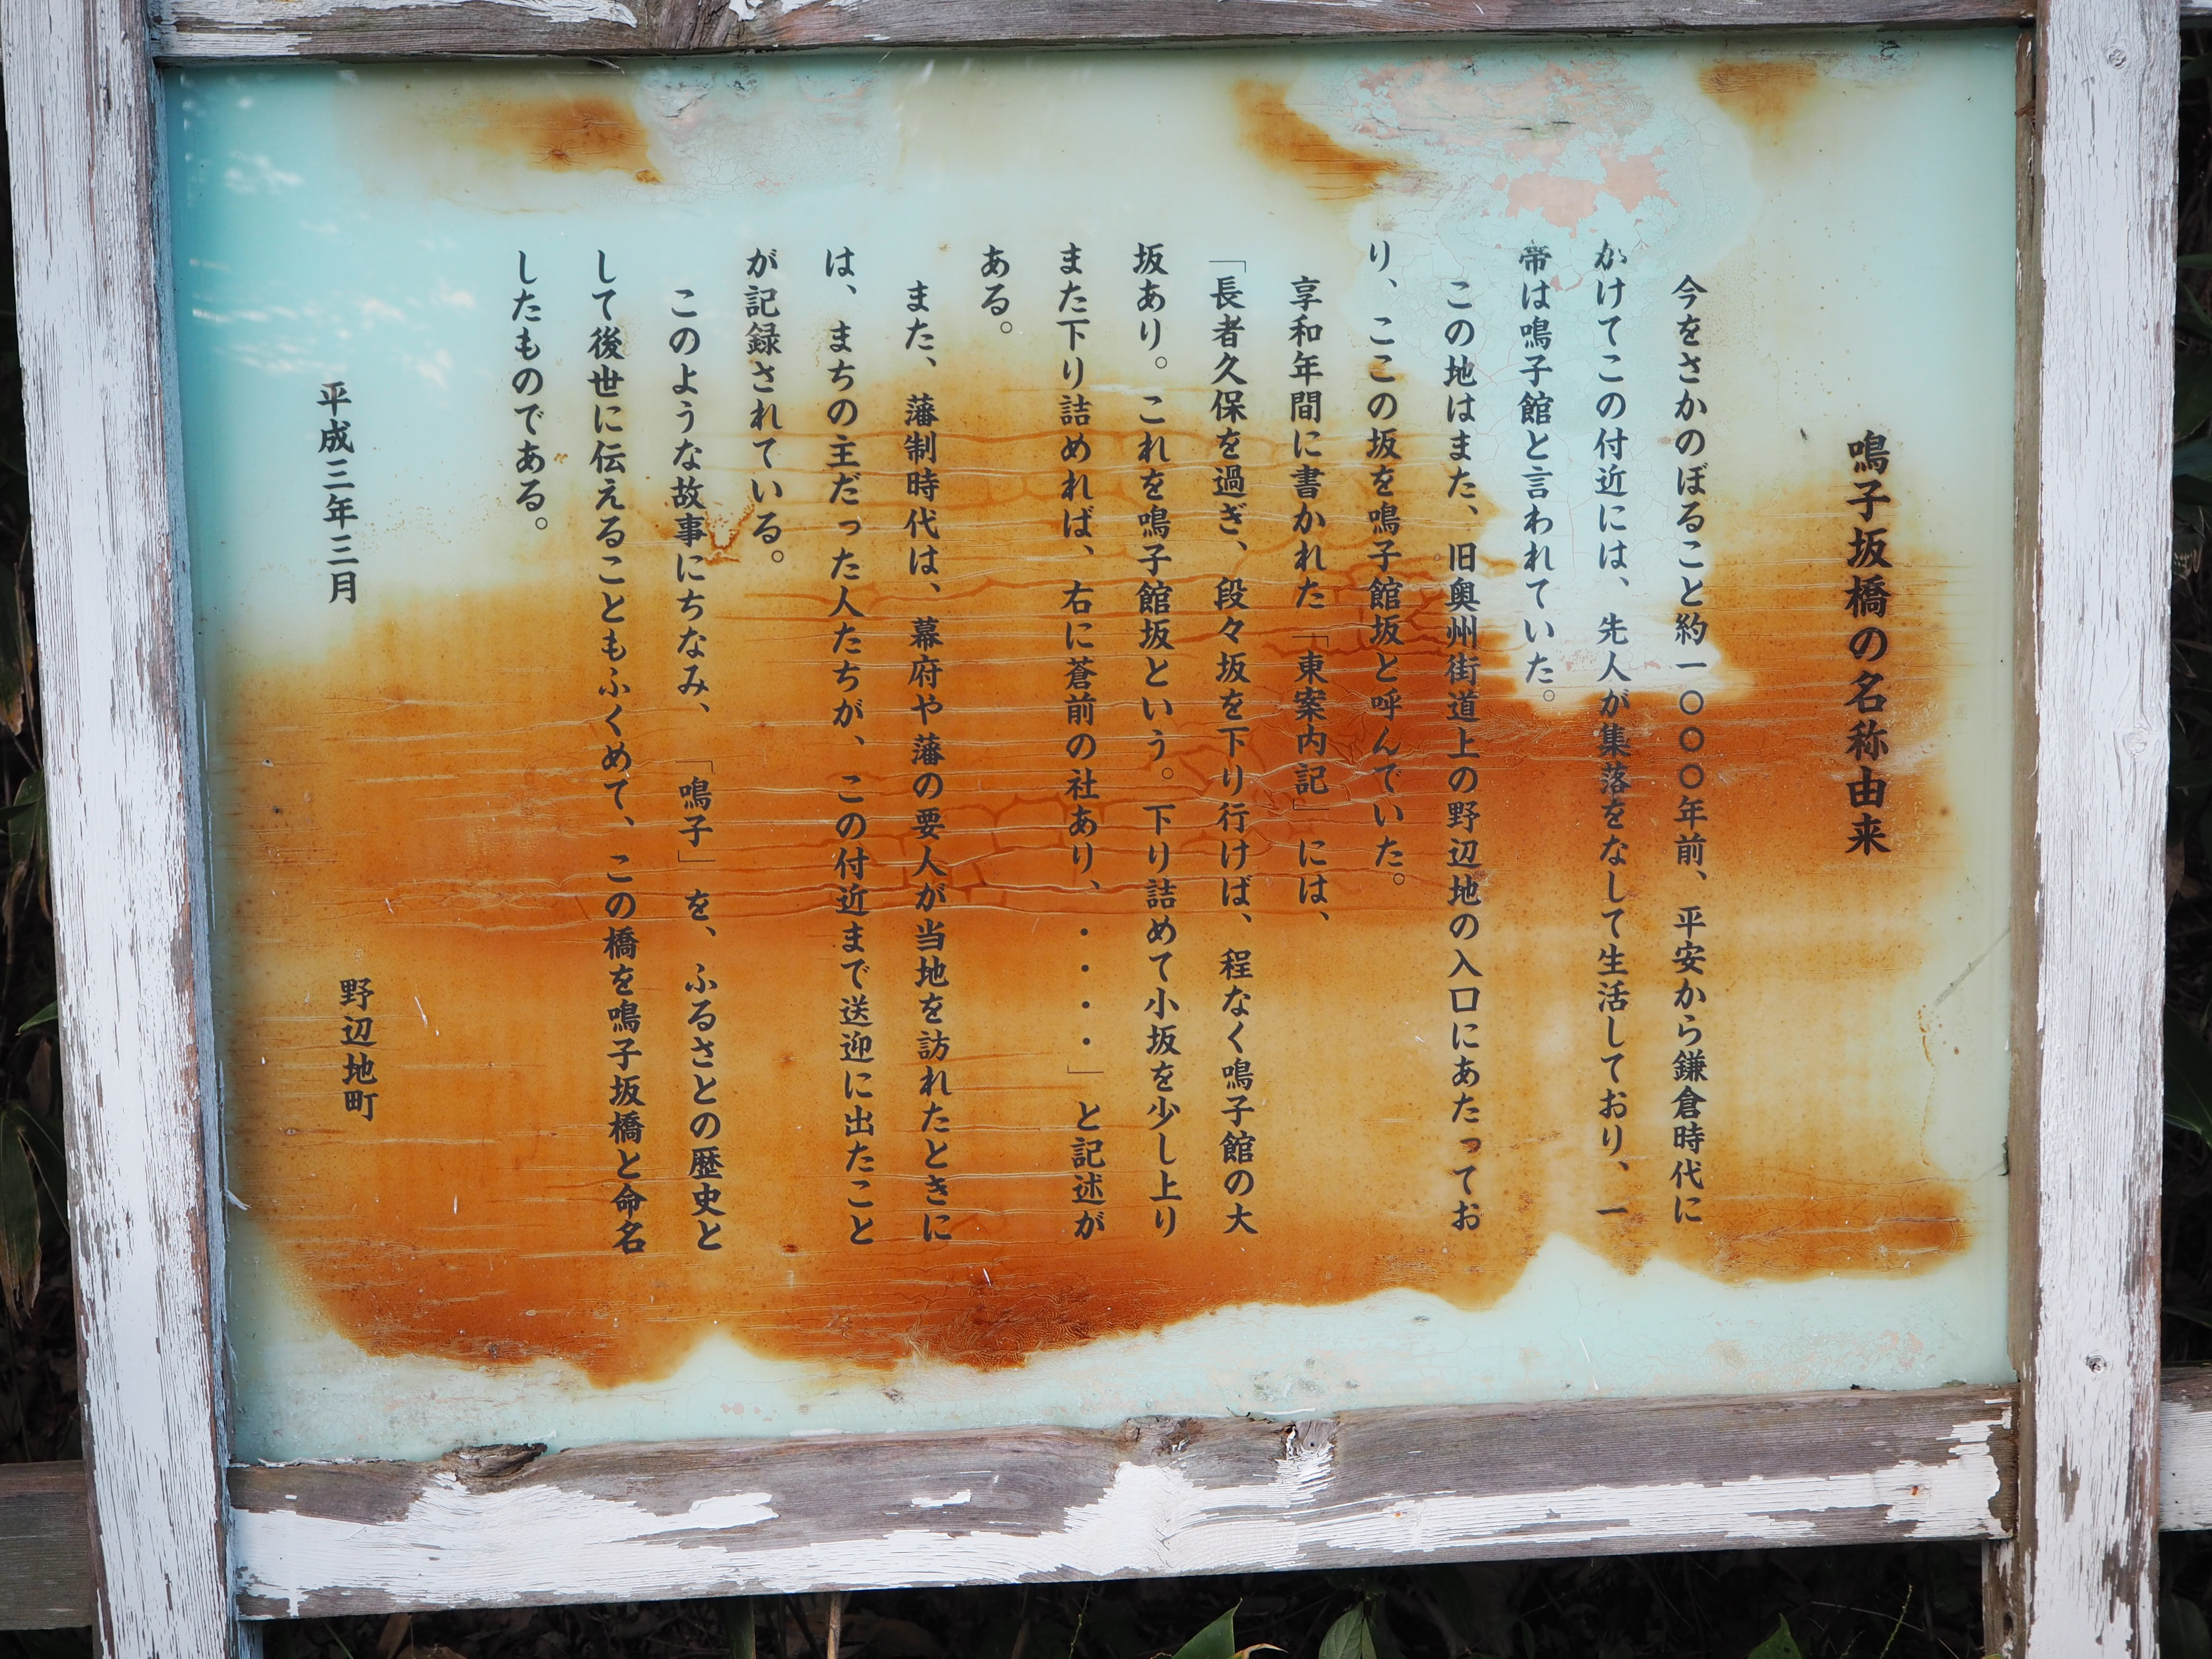 鳴子坂橋の名称由来
今をさかのぼること約一〇〇〇年前、平安から鎌倉時代に
かけてこの付近には、先人が集落をなして生活しており、一
帯は鳴子館と言われていた。
この地はまた、旧奥州街道上の野辺地の入口にあたってお
り、ここの坂を鳴子館坂と呼んでいた。
享和年間に書かれた「東案内記」には、
「長者久保を過ぎ、段々坂を下り行けば、程なく鳴子館の大
坂あり。これを鳴子館坂という。下り詰めて小坂を少し上り
また下り詰めれば、右に蒼前の社あり、・・・・」と記述が
ある。
また、藩制時代は、幕府や藩の要人が当地を訪れたときに
は、まちの主だった人たちが、この付近まで送迎に出たこと
が記録されている。
このような故事にちなみ、「鳴子」を、ふるさとの歴史と
して後世に伝えることもふくめて、この橋を鳴子坂橋と命名
したものである。
平成三年三月
野辺地町